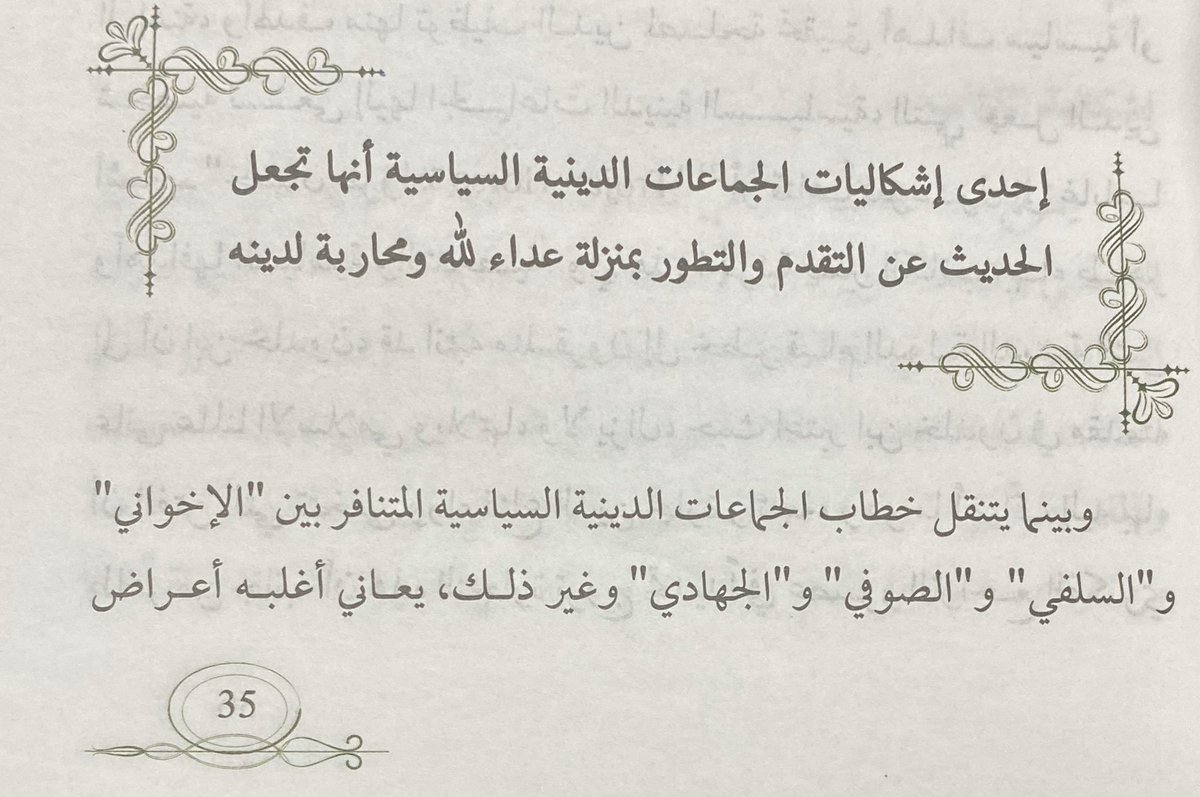 إحدى إشكاليات الجماعات الدينية السياسية أنها تجعل
الحديث عن التقدم والتطور بمنزلة عداء لله ومحاربة لدينه
وبينما يتنقل خطاب الجماعات الدينية السياسية المتنافر بين "الإخواني"
و"السلفي" و"الصوفي" و"الجهادي" وغير ذلك، يعاني أغلبه أعراض
35